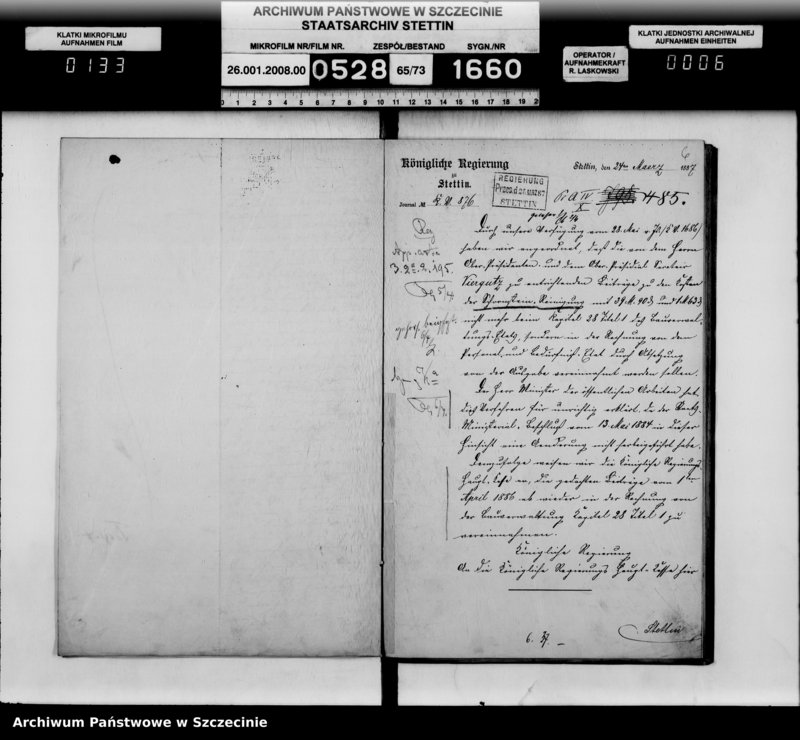 ARCHIWUM PAŃSTWOWE W SZCZECINIE
STAATSARCHIV STETTIN
KLATKI MIKROFILMU
AUFNAHMEN FILM
0133
MIKROFILM NR/FILM NR. ZESPÓŁ/BESTAND SYGN./NR
26.001.2008.00 0528 65/73 1660
0 1 2 3 4 5 6 7 8 9 10 11 12 13 14 15 16 17 18 19 20
OPERATOR /
AUFNAHMEKRAFT
R. LASKOWSKI
KLATKI JEDNOSTKI ARCHIWALNEJ
AUFNAHMEN EINHEITEN
0006
6
Königliche Regierung
zu
Stettin.
Stettin, den 24ten Maerz 1887
Journal No 876
REGIERUNG
STETTIN
485.
Durch unsere Verfügung vom 28. Mai
haben wir angeordnet, daß die von dem Herrn
Ober-Präsidenten und dem Ober-Präsidial Sekretair
Viergutz zu entrichtenden Beiträge zu den Kosten
der Schornstein-Reinigung mit 39 M. 90 d und 1 M 63 d
nicht mehr beim Kapitel 28 Titel 1 des Bauverwal-
tungs-Etats, sondern in der Rechnung von dem
Personal- und Bedürfniß-Etat durch Absetzung
von der Ausgabe vereinnahmt werden sollen.
Der Herr Minister der öffentlichen Arbeiten hat
dies Verfahren für unrichtig erklärt, da der Staats-
Ministerial-Beschluß vom 13 Mai 1884 in dieser
Hinsicht eine Aenderung nicht herbeigeführt habe.
Demzufolge weisen wir die Königliche Regierungs
Haupt-Kasse an, die gedachten Beiträge vom 1ten
April 1886 ab wieder in der Rechnung von
der Bauverwaltung Kapitel 28 Titel 1 zu
vereinnahmen.
Königliche Regierung
An die Königliche Regierungs Haupt-Kasse hier
Stettin
Archiwum Państwowe w Szczecinie